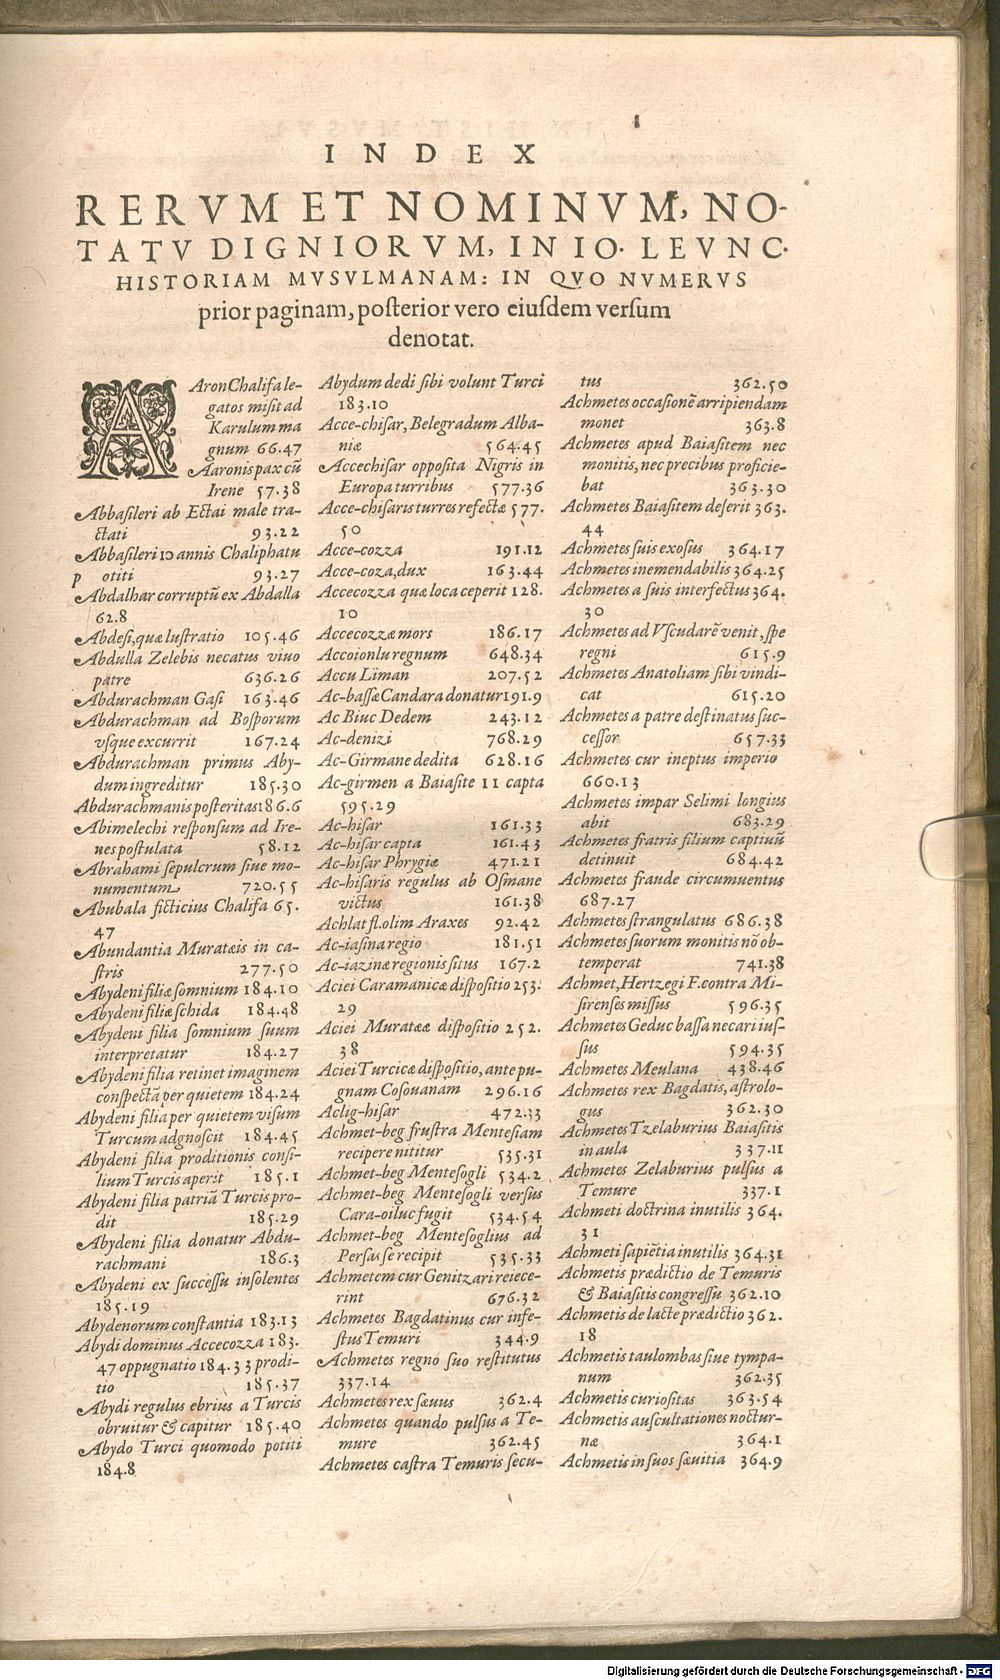 INDEX
RERVM ET NOMINVM, NO-
TATV DIGNIORVM, IN IO. LEVNC.
HISTORIAM MVSVLMANAM: IN QVO NVMERVS
prior paginam, posterior vero eiusdem versum
denotat.
AAron Chalifa le-
gatos misit ad
Karulum ma
gnum 66.47
Aaronis pax cū
Irene 57.38
Abbasileri ab Ectai male tra-
ctati 93.22
Abbasileri 10 annis Chaliphatu
p otiti 93.27
Abdalhar corruptū ex Abdalla
62.8
Abdesi, quæ lustratio 105.46
Abdulla Zelebis necatus viuo
patre 636.26
Abdurachman Gasi 163.46
Abdurachman ad Bosporum
vsque excurrit 167.24
Abdurachman primus Aby-
dum ingreditur 185.30
Abdurachmanis posteritas 186.6
Abimelechi responsum ad Ire-
nes postulata 58.12
Abrahami sepulcrum siue mo-
numentum 720.55
Abubala ficticius Chalifa 65.
47
Abundantia Muratæis in ca-
stris 277.50
Abydeni filiæ somnium 184.10
Abydeni filiæ schida 184.48
Abydeni filia somnium suum
interpretatur 184.27
Abydeni filia retinet imaginem
conspectā per quietem 184.24
Abydeni filia per quietem visum
Turcum adgnoscit 184.45
Abydeni filia proditionis consi-
lium Turcis aperit 185.1
Abydeni filia patriā Turcis pro-
dit 185.29
Abydeni filia donatur Abdu-
rachmani 186.3
Abydeni ex successu insolentes
185.19
Abydenorum constantia 183.13
Abydi dominus Accecozza 183.
47 oppugnatio 184.33 prodi-
tio 185.37
Abydi regulus ebrius a Turcis
obruitur & capitur 185.40
Abydo Turci quomodo potiti
184.8
Abydum dedi sibi volunt Turci
183.10
Acce-chisar, Belegradum Alba-
niæ 564.45
Accechisar opposita Nigris in
Europa turribus 577.36
Acce-chisaris turres refectæ 577.
50
Acce-cozza 191.12
Acce-coza, dux 163.44
Accecozza quæ loca ceperit 128.
10
Accecozzæ mors 186.17
Accoionlu regnum 648.34
Accu Liman 207.52
Ac-bassæ Candara donatur 191.9
Ac Biuc Dedem 243.12
Ac-denizi 768.29
Ac-Girmane dedita 628.16
Ac-girmen a Baiasite 11 capta
595.29
Ac-hisar 161.33
Ac-hisar capta 161.43
Ac-hisar Phrygiæ 471.21
Ac-hisaris regulus ab Osmane
victus 161.38
Achlat fl. olim Araxes 92.42
Ac-iasina regio 181.51
Ac-iazinæ regionis situs 167.2
Aciei Caramanicæ dispositio 253.
29
Aciei Muratææ dispositio 252.
38
Aciei Turcicæ dispositio, ante pu-
gnam Cosouanam 296.16
Aclig-hisar 472.33
Achmet-beg frustra Mentesiam
recipere nititur 535.31
Achmet-beg Mentesogli 534.2
Achmet-beg Mentesogli versus
Cara-oiluc fugit 534.54
Achmet-beg Mentesoglius ad
Persas se recipit 535.33
Achmetem cur Genitzari reiece-
rint 676.32
Achmetes Bagdatinus cur infe-
stus Temuri 344.9
Achmetes regno suo restitutus
337.14
Achmetes rex sæuus 362.4
Achmetes quando pulsus a Te-
mure 362.45
Achmetes castra Temuris secu-
tus 362.50
Achmetes occasionē arripiendam
monet 363.8
Achmetes apud Baiasitem nec
monitis, nec precibus proficie-
bat 363.30
Achmetes Baiasitem deserit 363.
44
Achmetes suis exosus 364.17
Achmetes inemendabilis 364.25
Achmetes a suis interfectus 364.
30
Achmetes ad Vscudarē venit, spe
regni 615.9
Achmetes Anatoliam sibi vindi-
cat 615.20
Achmetes a patre destinatus suc-
cessor 657.33
Achmetes cur ineptus imperio
660.13
Achmetes impar Selimi longius
abit 683.29
Achmetes fratris filium captiuū
detinuit 684.42
Achmetes fraude circumuentus
687.27
Achmetes strangulatus 686.38
Achmetes suorum monitis nō ob-
temperat 741.38
Achmet, Hertzegi F. contra Mi-
sirenses missus 596.35
Achmetes Geduc bassa necari ius-
sus 594.35
Achmetes Meulana 438.46
Achmetes rex Bagdatis, astrolo-
gus 362.30
Achmetes Tzelaburius Baiasitis
in aula 337.11
Achmetes Zelaburius pulsus a
Temure 337.1
Achmeti doctrina inutilis 364.
31
Achmeti sapiētia inutilis 364.31
Achmetis prædictio de Temuris
& Baiasitis congressu 362.10
Achmetis de lacte prædictio 362.
18
Achmetis taulombas siue tympa-
num 362.35
Achmetis curiositas 363.54
Achmetis auscultationes noctur-
næ 364.1
Achmetis in suos sæuitia 364.9
Digitalisierung gefördert durch die Deutsche Forschungsgemeinschaft - DFG